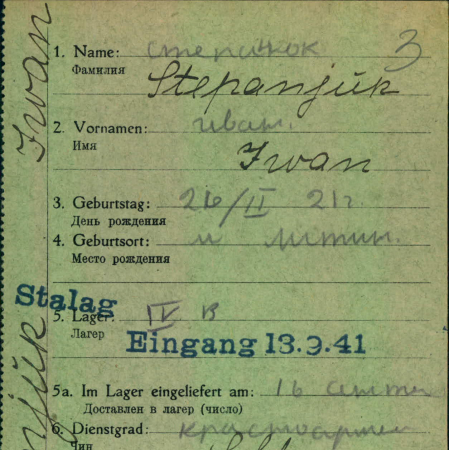 3
1. Name:
Фамилия
Stepanjuk
2. Vornamen: иван.
Имя
Iwan
3. Geburtstag: 26/II 21г.
День рождения
4. Geburtsort:
Место рождения
Stalag
5. Lager: IV B
Лагер
Eingang 13.9.41
5a. Im Lager eingeliefert am: 16
Доставлен в лагер (число)
6. Dienstgrad: красноарме
Чин
Iwan